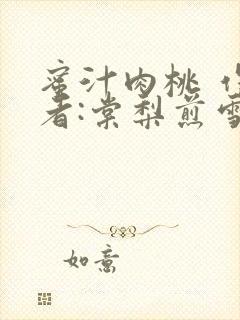 蜜汁肉桃
者:棠梨煎雪
如意